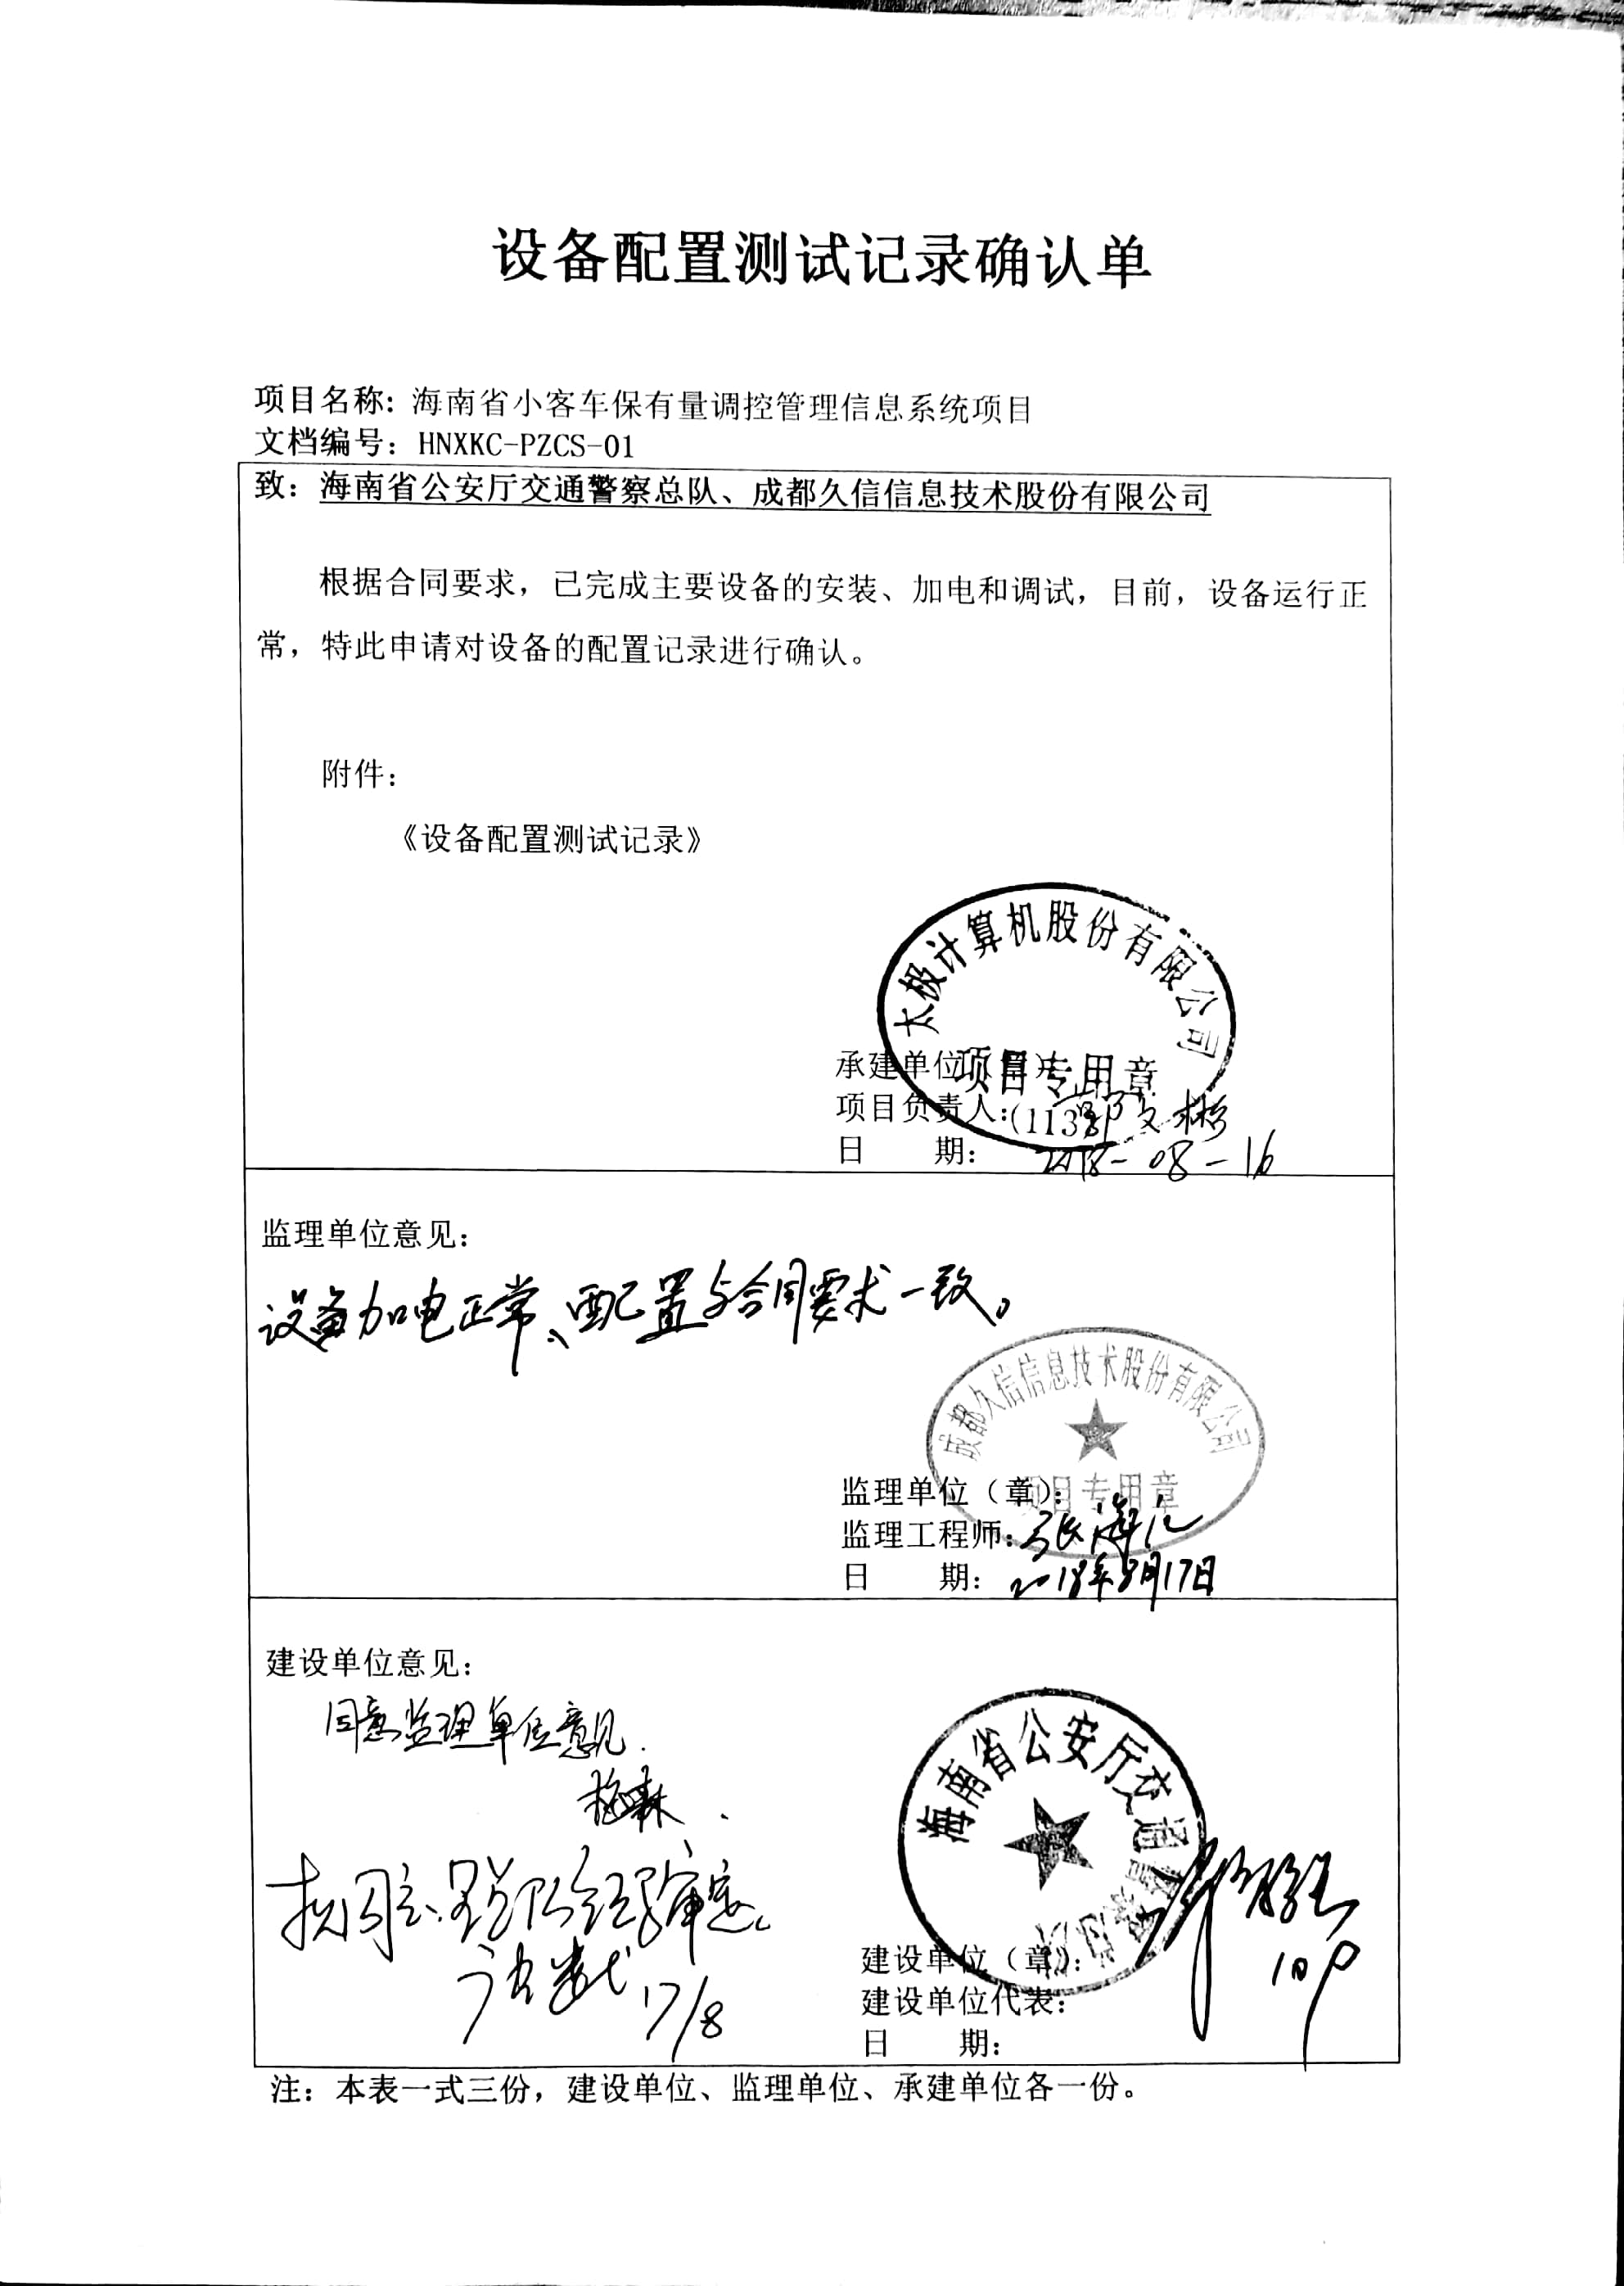 设备配置测试记录确认单
项目名称: 海南省小客车保有量调控管理信息系统项目
文档编号: HNXKC-PZCS-01
致: 海南省公安厅交通警察总队、成都久信信息技术股份有限公司
根据合同要求，已完成主要设备的安装、加电和调试，目前，设备运行正
常，特此申请对设备的配置记录进行确认。
附件:
《设备配置测试记录》
太极计算机股份有限公司
项目专用章
承建单位（章）:
项目负责人:
日 期: 2018-08-16
监理单位意见:
设备加电正常、配置与合同要求一致。
成都久信信息技术股份有限公司
项目专用章
监理单位（章）:
监理工程师:
日 期: 2018年8月17日
建设单位意见:
同意监理单位意见.
17/8
海南省公安厅交通警察总队
建设单位（章）:
建设单位代表:
日 期:
注: 本表一式三份，建设单位、监理单位、承建单位各一份。